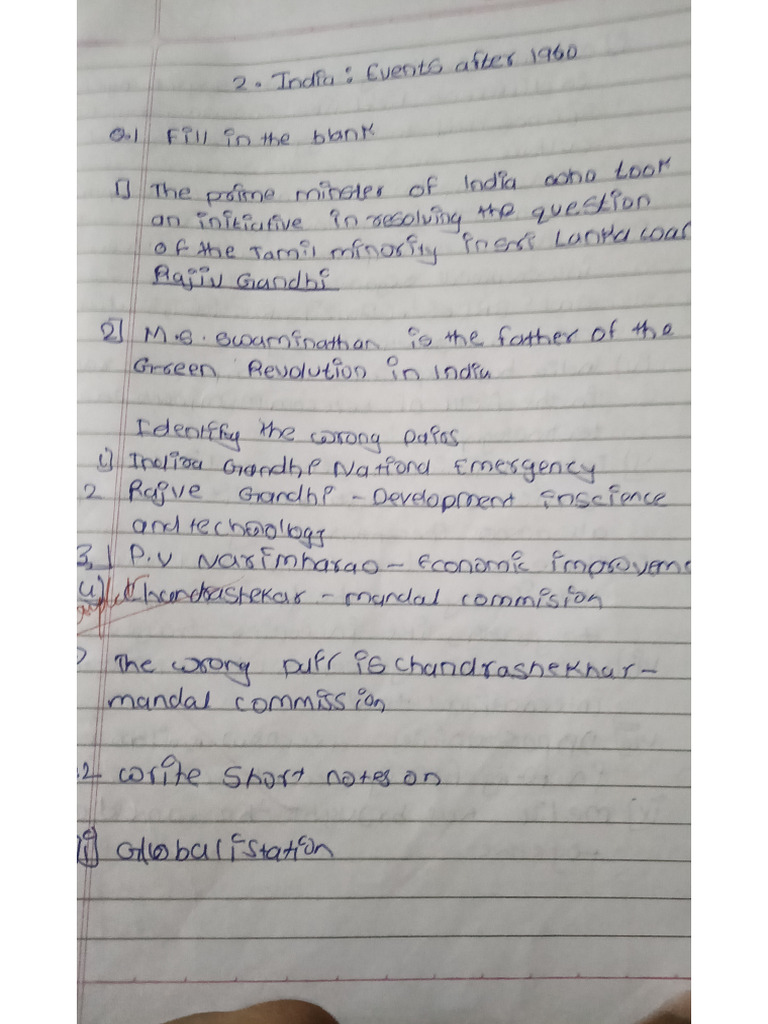 2. India: Events after 1960
Q.1 Fill in the blank
1] The prime minster of India who took
an initiative in resolving the question
of the Tamil minority in sri Lanka was
Rajiv Gandhi
2] M.S. Swaminathan is the father of the
Green Revolution in India
Identify the wrong pairs
1) Indira Gandhi National Emergency
2 Rajive Gandhi - Development inscience
and technology
3.] P.V Narimharao - Economic improvem
4) Chandrashekar - mandal commision
The wrong pair is chandrashekhar-
mandal commission
.2 Write Short notes on
i] Globalistation